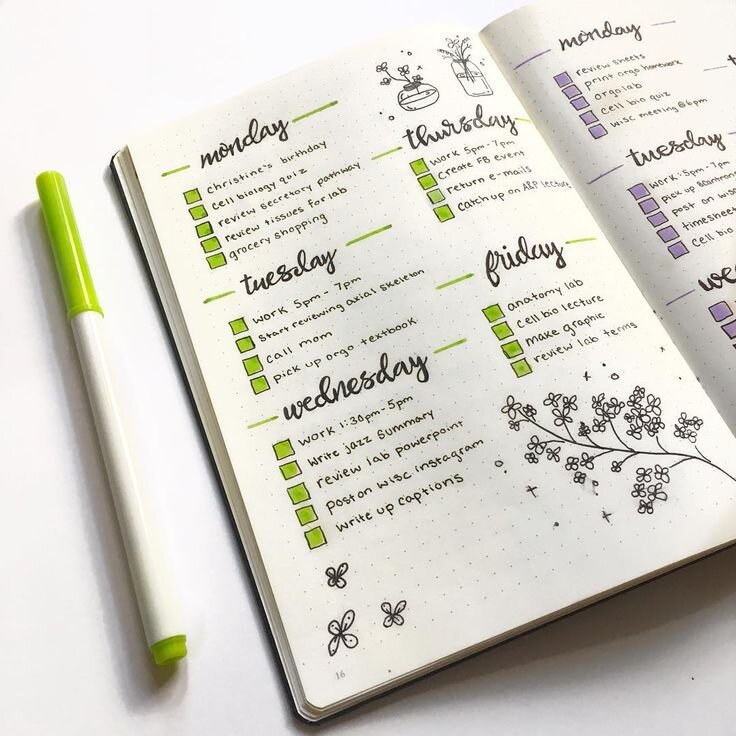 monday
christine's birthday
cell biology quiz
review secretory pathway
review tissues for lab
grocery shopping
tuesday
work 5pm - 7pm
start reviewing axial skeleton
call mom
pick up orgo textbook
wednesday
work 1:30pm - 5pm
write jazz summary
review lab powerpoint
post on wisc instagram
write up captions
thursday
work 5pm - 7pm
create FB event
return e-mails
catch up on A&P lecture
friday
anatomy lab
cell bio lecture
make graphic
review lab terms
16
monday
review sheets
print orgo homework
orgo lab
cell bio quiz
wisc meeting @ 6pm
tuesday
work 5pm - 7pm
pick up
post on
timesheet
cell bio
we